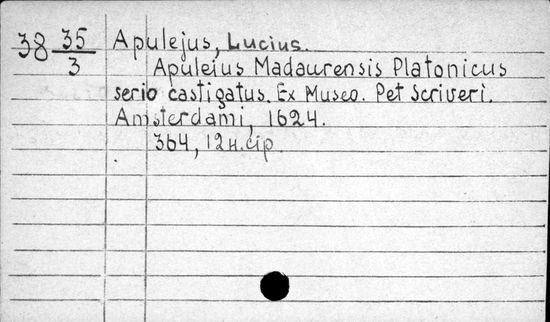 38 35/3 Apulejus, Lucius.
Apuleius Madaurensis Platonicus
serio castigatus. Ex Museo. Pet Scriveri.
Amsterdami, 1624.
364, 12н.стр.